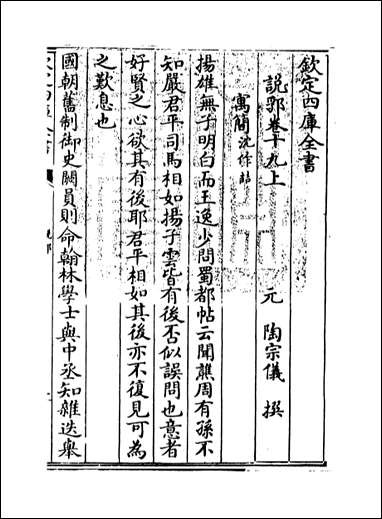 欽定四庫全書
說郛卷十九上
元 陶宗儀 撰
寓簡沈作喆
揚雄無子明白而王逸少問蜀都帖云聞譙周有孫不
知嚴君平司馬相如揚子雲皆有後否似誤問也意者
好賢之心欲其有後耶君平相如其後亦不復見可為
之歎息也
國朝舊制御史闕員則命翰林學士與中丞知雜迭舉